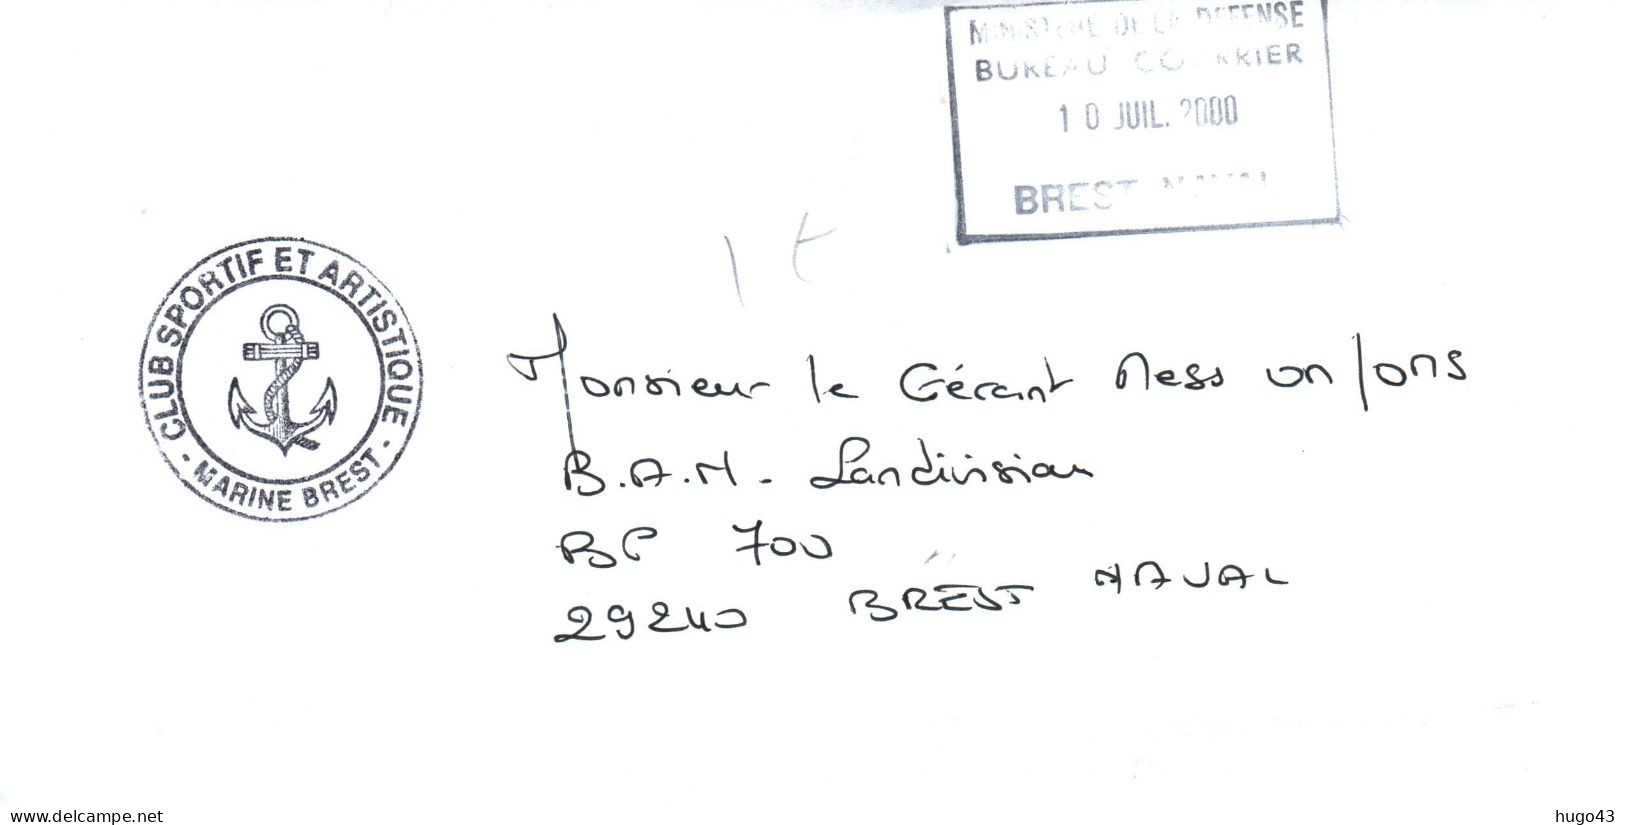 MINISTERE DE LA DEFENSE
BUREAU COURRIER
10 JUIL. 2000
BREST NAVAL
CLUB SPORTIF ET ARTISTIQUE
- MARINE BREST -
Monsieur le Gérant Mess on/ons
B.A.N. Landivisiau
BP 700
29240 BREST NAVAL
www.delcampe.net
hugo43